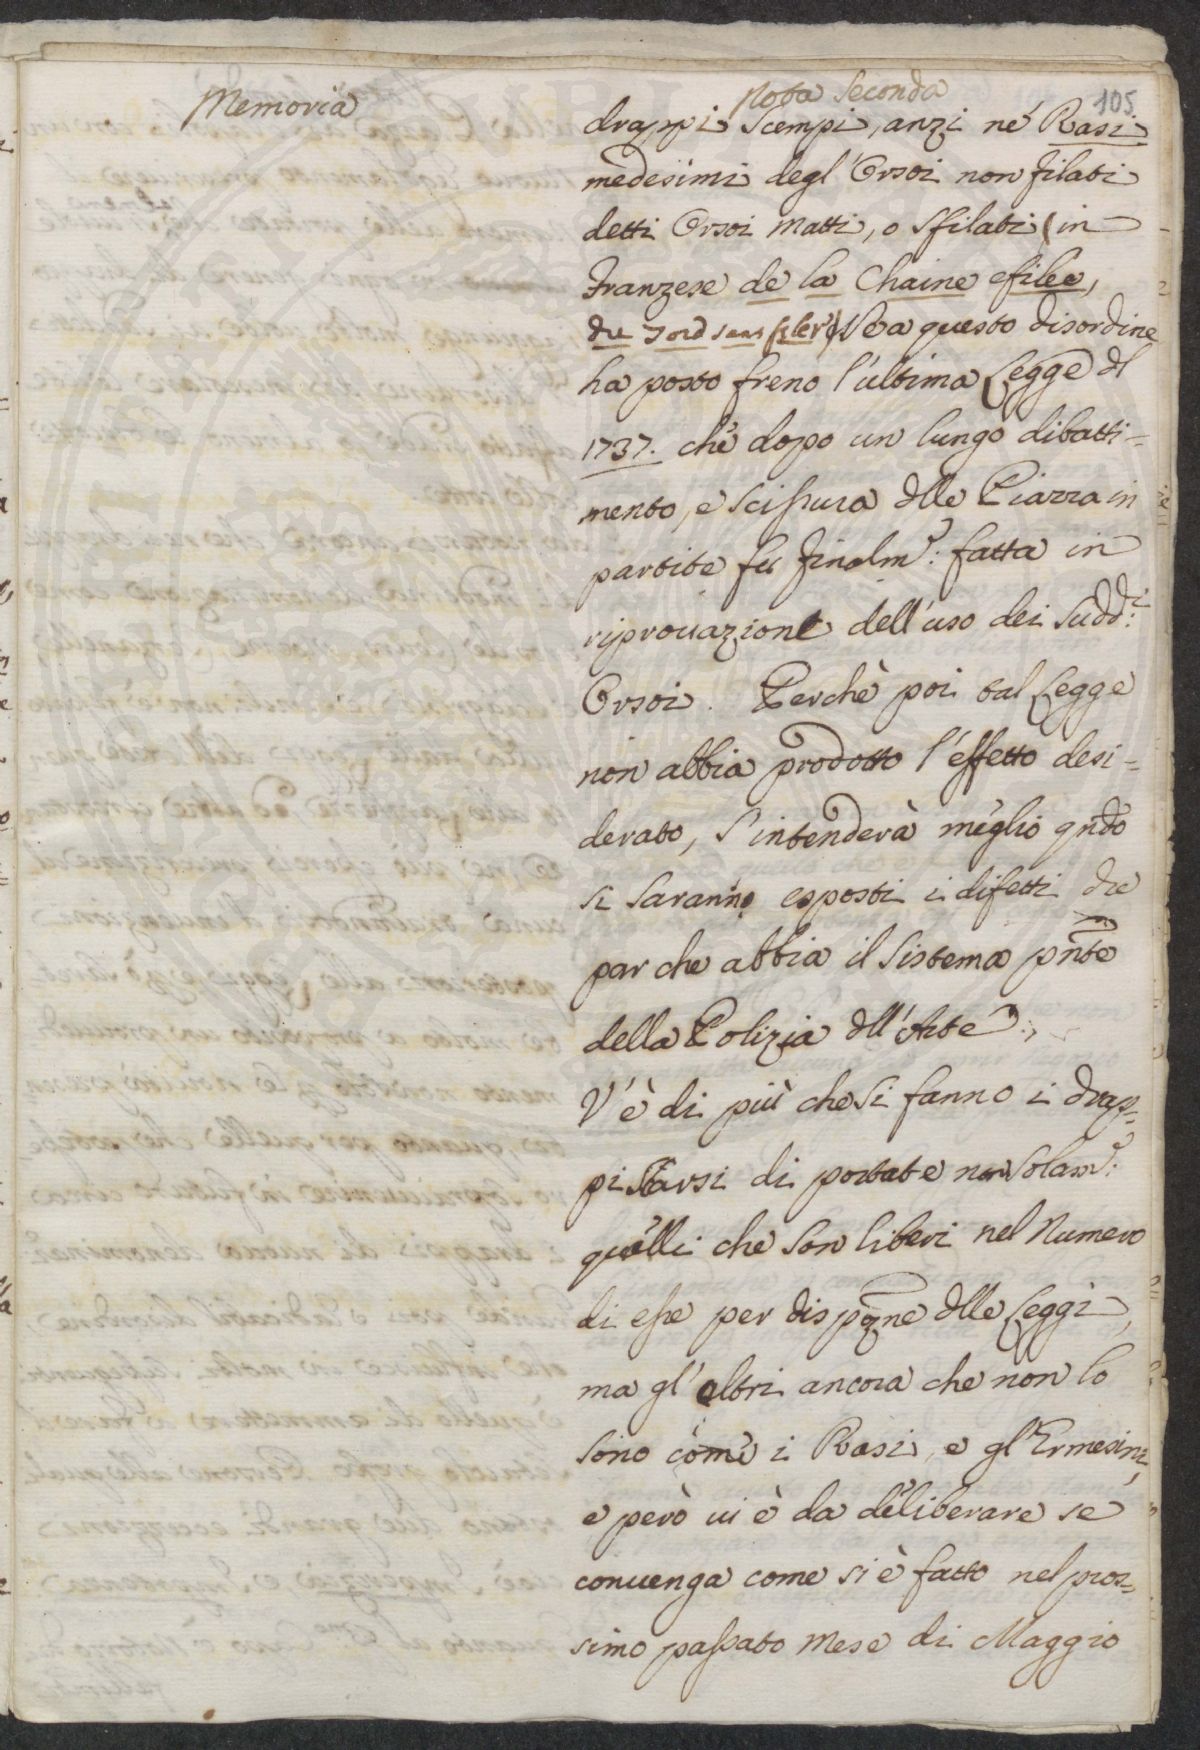 Memoria
Nota Seconda
105
drappi Scempi, anzi ne' Rasi
medesimi degl' Orsoi non filati
detti Orsoi matti, o sfilati (in
Franzese de la Chaine efilee,
du sans filer) Ma questo disordine
ha posto freno l'ultima Legge dl
1737. chè dopo un lungo dibatti-
mento, e scissura dlle Piazza in
partite fu finalm.e: fatta in
riprovazione dell'uso dei Sudd.i:
Orsoi. Perchè poi tal Legge
non abbia prodotto l'effetto desi-
derato, s'intenderà meglio qndo
si saranno esposti i difetti che
par che abbia il Sistema pnte
della Polizia dll'Arte.
V'è di più che si fanno i drap-
pi Scarsi di portate non solam.e:
quelli che son liberi nel Numero
di esse per dispozne dlle Leggi,
ma gl'altri ancora che non lo
sono come i Rasi, e gl'Ermesini,
e però vi è da deliberare se
convenga come si è fatto nel pros-
simo passato mese di Maggio